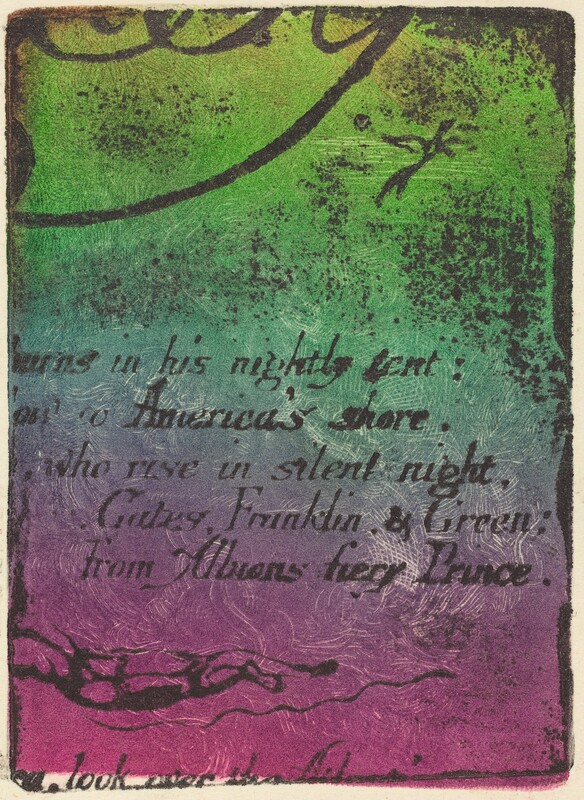 burns in his nightly tent:
to America's shore.
, who rise in silent night,
Gates, Franklin & Green;
from Albions fiery Prince.
look over the